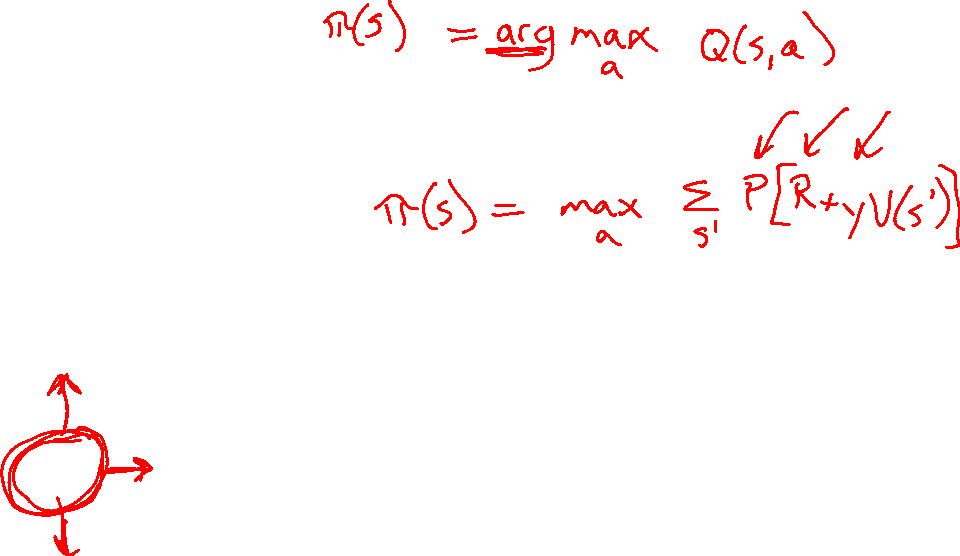 π(s) = arg max_a Q(s,a)
π(s) = max_a Σ_s' P[R+γV(s')]